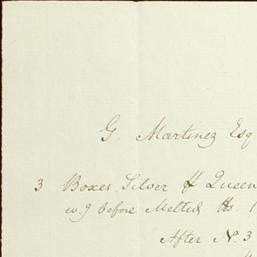 G. Martinez Esq
3 Boxes Silver ff Queen
w.g before Melted. lb. 1
After No. 3